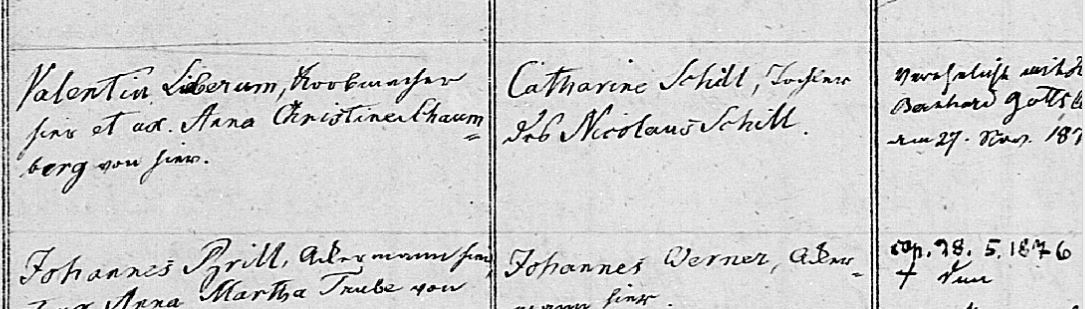 Valentin Liberum, Korbmacher
hier et ux. Anna Christine Schaum=
berg von hier.
Catharine Schill, Tochter
des Nicolaus Schill.
Verehelicht mit
Bernhard Gotts
am 27. Nov. 187
Johannes Brill, Ackermann hier,
Anna Martha Trube von
Johannes Werner, Acker-
mann hier.
cop. 28. 5. 1876
†